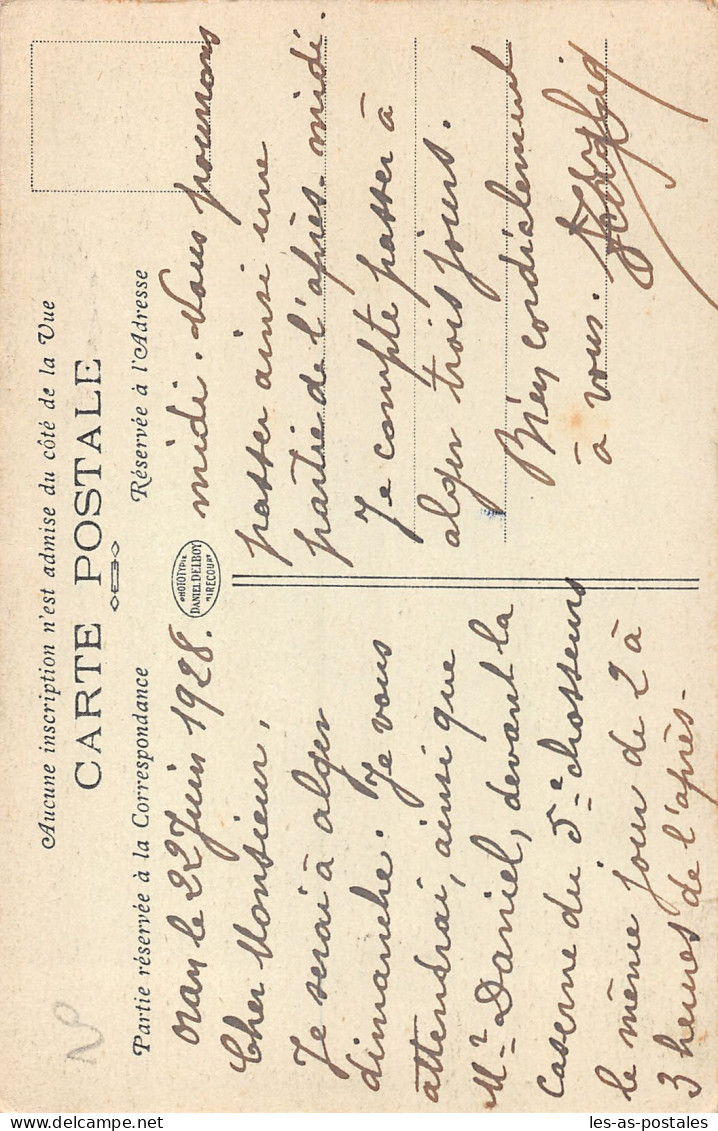 Aucune inscription n'est admise du côté de la Vue
CARTE POSTALE
Partie réservée à la Correspondance
Réservée à l'Adresse
Oran le 22 Juin 1928.
Cher Monsieur,
Je serai à alger
dimanche. Je vous
attendrai, ainsi que
Mr Daniel, devant la
Caserne du 5e chasseurs
le même jour de 2 à
3 heures de l'après-
PHOTOTYPIE
DANIEL DELBOY
MIRECOURT
midi. Nous pourrons
passer ainsi une
partie de l'après-midi.
Je compte passer à
alger trois jours.
Bien cordialement
à vous.
les-as-postales